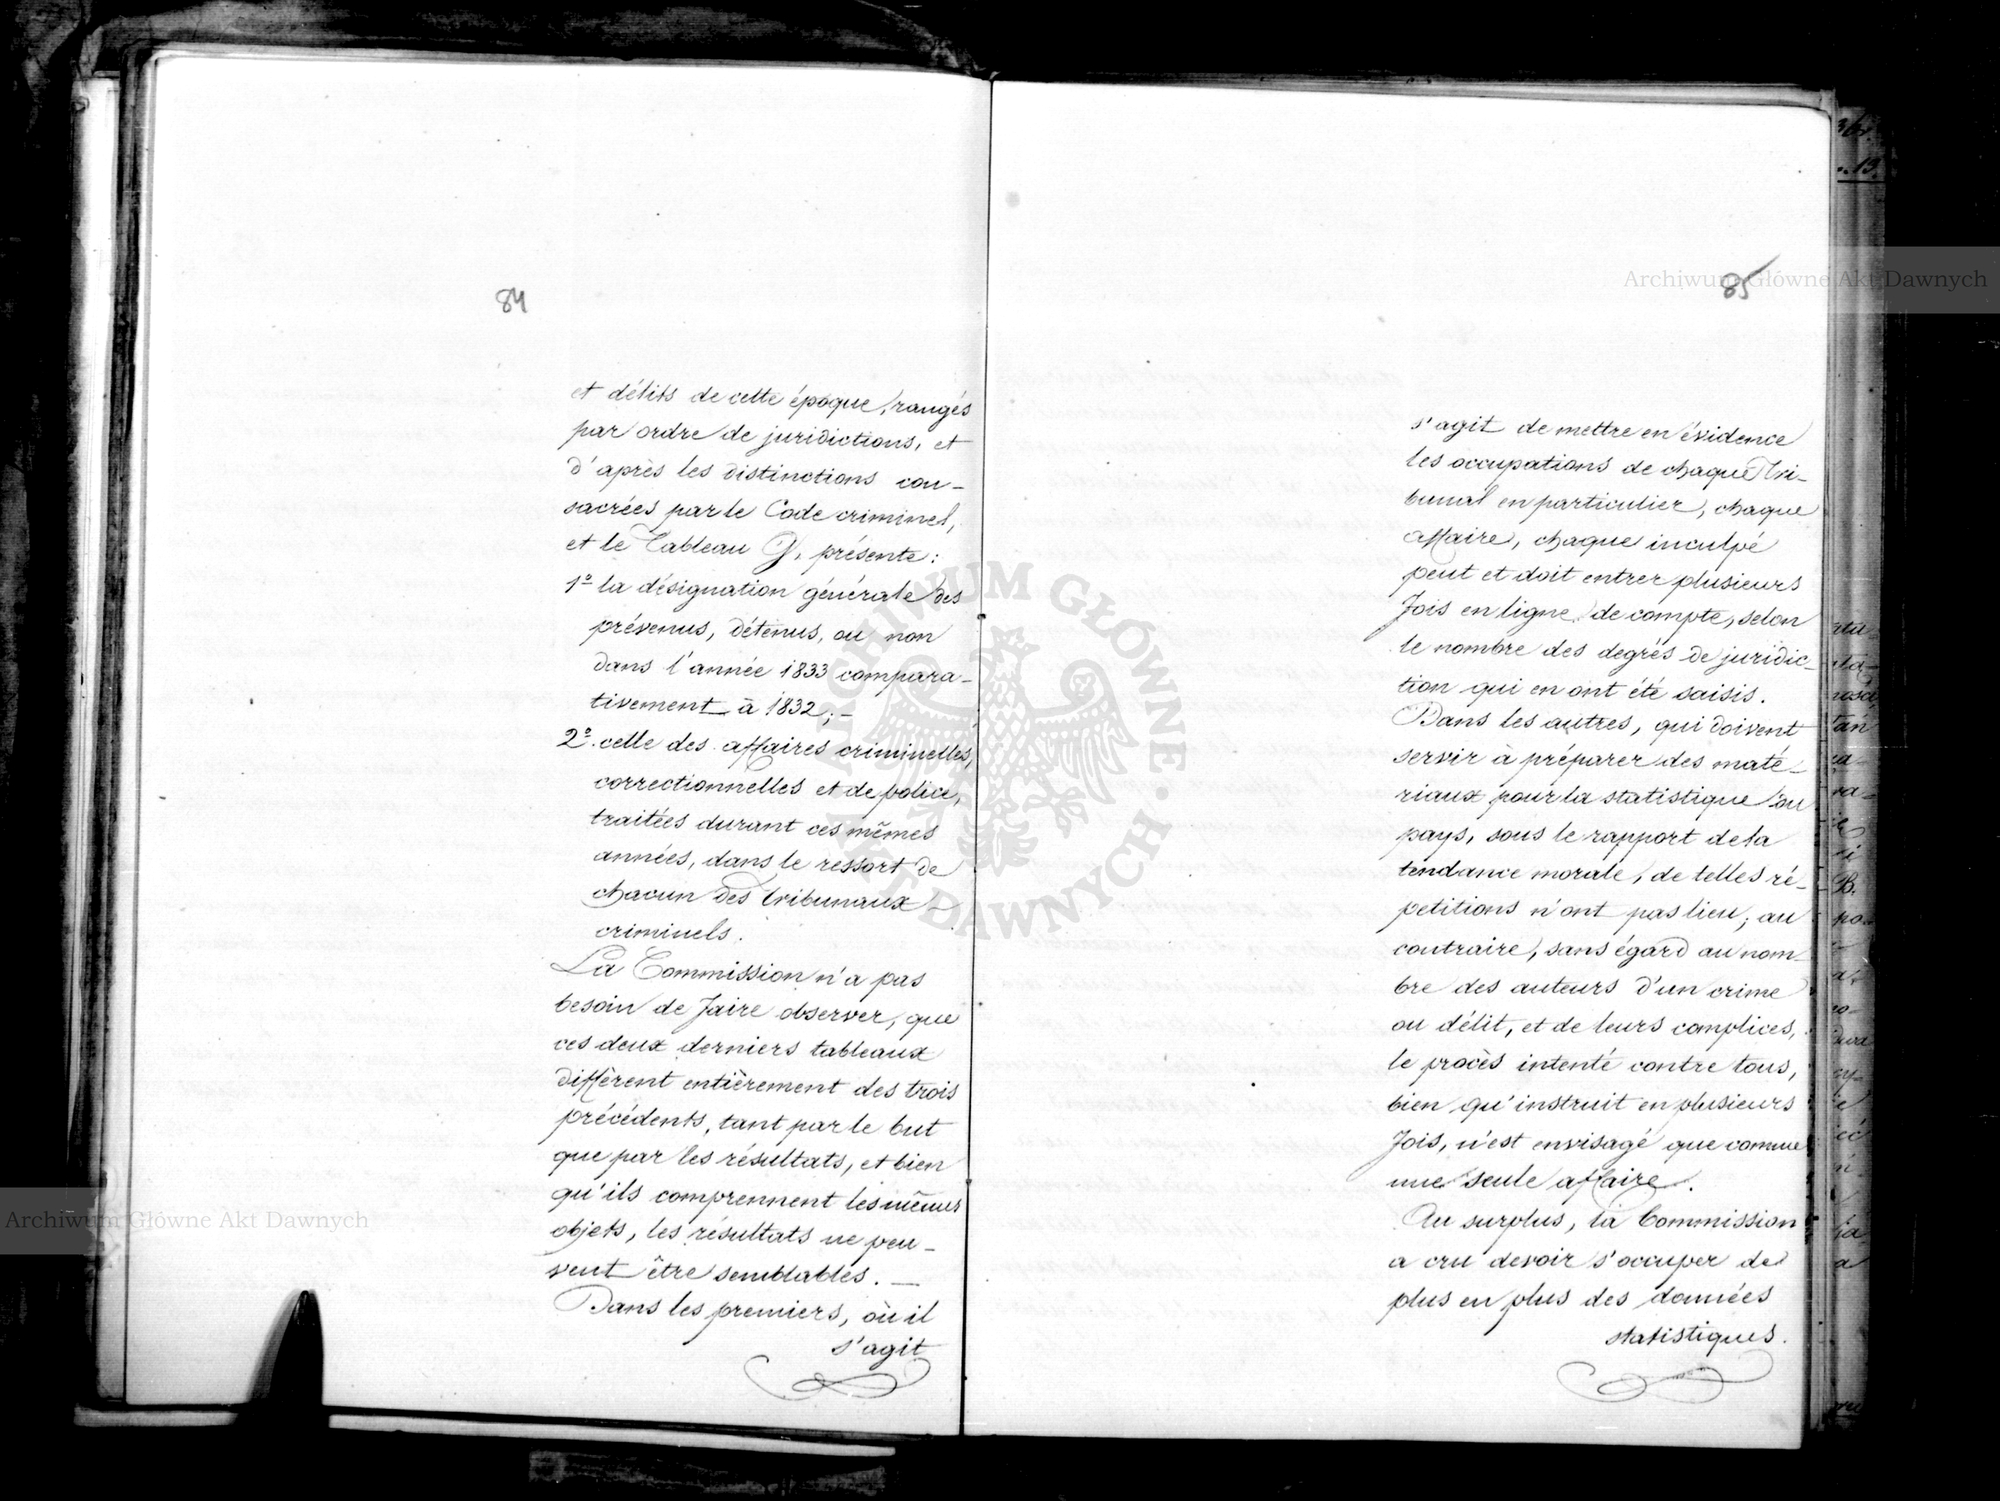 84
et délits de cette époque, rangés
par ordre de juridictions, et
d'après les distinctions con-
sacrées par le Code criminel,
et le Tableau G. présente:
1º la désignation générale des
prévenus, détenus, ou non
dans l'année 1833 compara-
tivement à 1832; -
2º. celle des affaires criminelles,
correctionnelles et de police,
traitées durant ces mêmes
années, dans le ressort de
chacun des tribunaux -
criminels.
La Commission n'a pas
besoin de faire observer, que
ces deux derniers tableaux
diffèrent entièrement des trois
précédents, tant par le but
que par les résultats, et bien
qu'ils comprennent les mêmes
objets, les résultats ne peu-
vent être semblables. —
Dans les premiers, où il
s'agit
85
s'agit de mettre en évidence
les occupations de chaque Tri-
bunal en particulier, chaque
affaire, chaque inculpé
peut et doit entrer plusieurs
fois en ligne de compte, selon
le nombre des degrés de juridic-
tion qui en ont été saisis.
Dans les autres, qui doivent
servir à préparer des maté-
riaux pour la statistique du
pays, sous le rapport de la
tendance morale, de telles ré-
petitions n'ont pas lieu; au
contraire, sans égard au nom-
bre des auteurs d'un crime
ou délit, et de leurs complices,
le procès intenté contre tous,
bien qu'instruit en plusieurs
fois, n'est envisagé que comme
une seule affaire.
Au surplus, la Commission
a cru devoir s'occuper de
plus en plus des données
statistiques.
Archiwum Główne Akt Dawnych
Archiwum Główne Akt Dawnych
ARCHIWUM GŁÓWNE AKT DAWNYCH